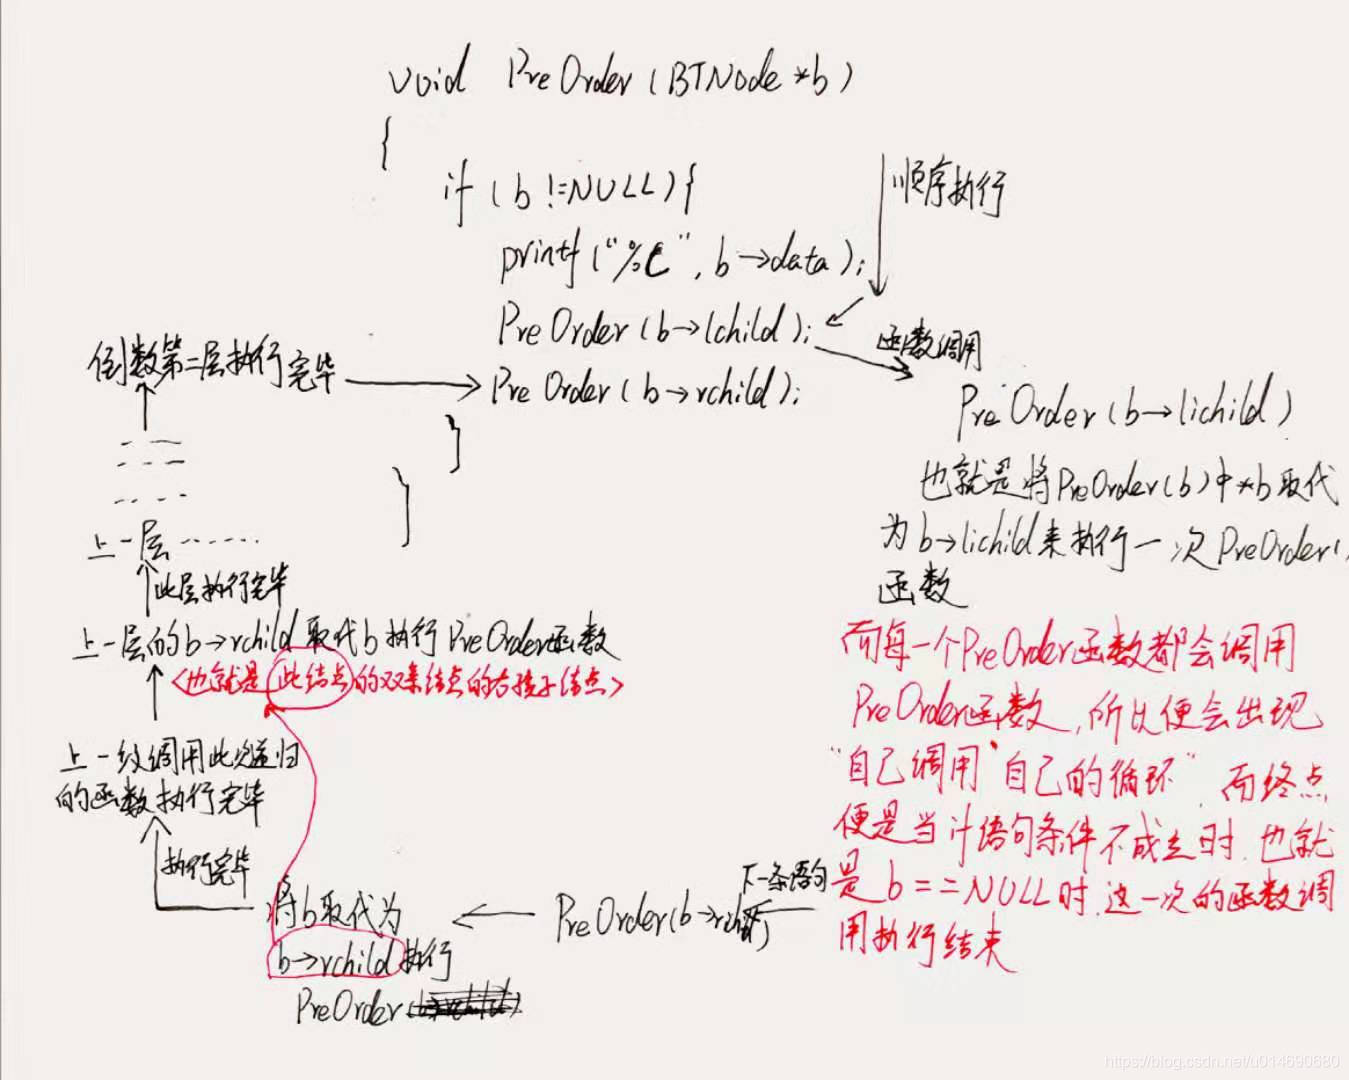 void PreOrder(BTNode *b)
{
if(b!=NULL){
顺序执行
printf("%c",b→data);
PreOrder(b→lchild);
函数调用
倒数第二层执行完毕
PreOrder(b→rchild);
}
}
PreOrder(b→lichild)
也就是将PreOrder(b)中*b取代
为b→lichild来执行一次PreOrder(
函数
上一层------
此层执行完毕
上一层的b→rchild取代b执行PreOrder函数
<也就是此结点的双亲结点的右孩子结点>
而每一个PreOrder函数都会调用
PreOrder函数,所以便会出现
"自己调用"自己的循环",而终点
便是当if语句条件不成立时,也就
是b==NULL时,这一次的函数调
用执行结束
上一级调用此递归
的函数执行完毕
执行完毕
下一条语句
PreOrder(b→rchild)
将b取代为
b→rchild执行
PreOrder
https://blog.csdn.net/u014690680